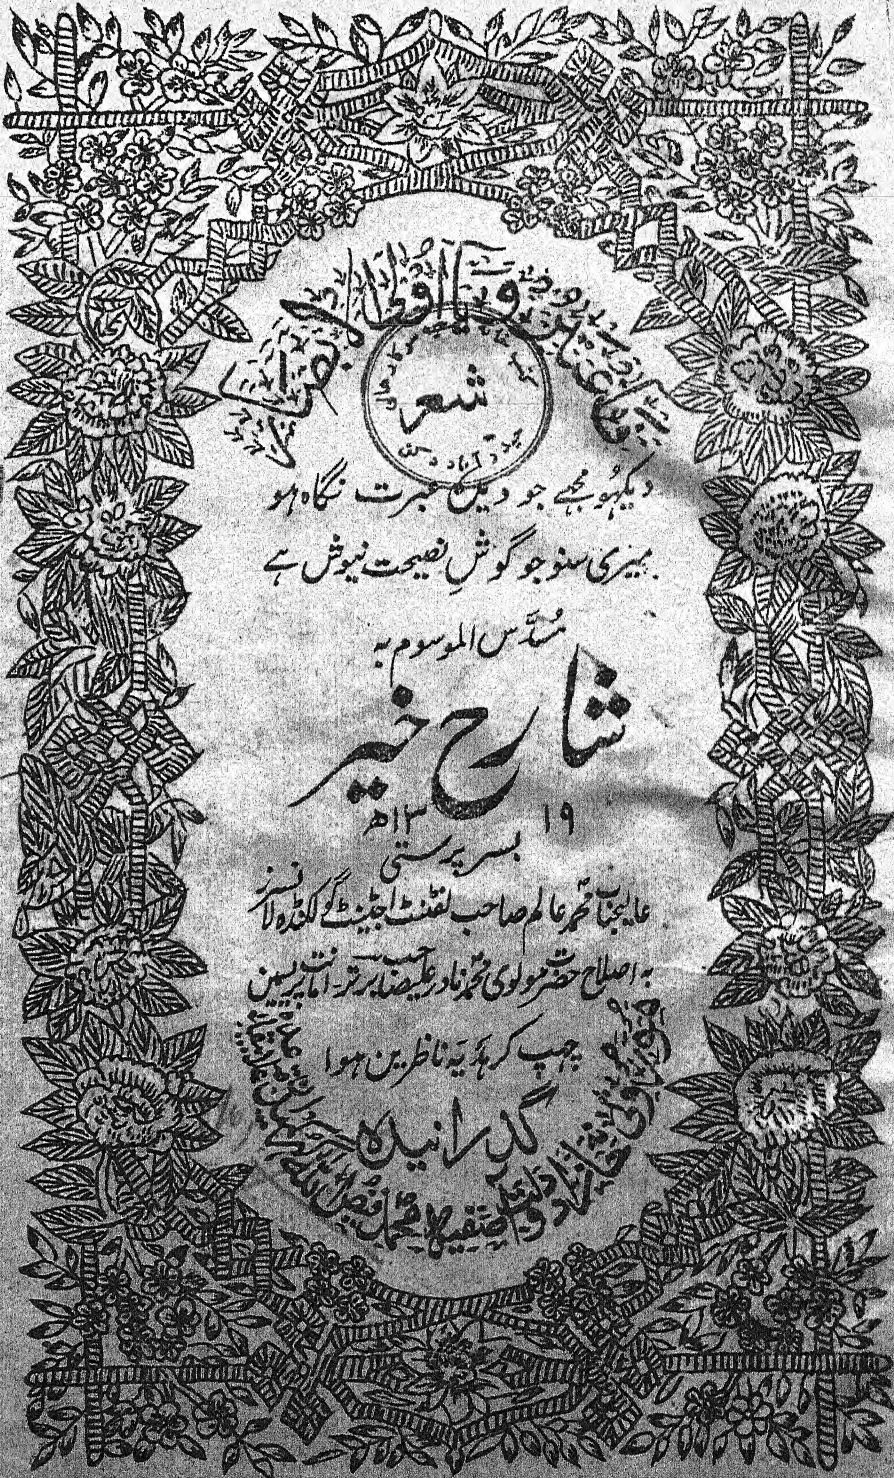 فاعتبروا یا اولی الابصار
شعر
دیکہو مجھے جو دیدۂ عبرت نگاہ ہو
میری سنو جو گوشِ نصیحت نیوش ہے
مُسدَّس الموسوم بہ
شارح خیر
۱۹ ۱۳ھ
بسر پرستی
عالیجناب محمد عالم صاحب لفٹننٹ اجٹینٹ گولکنڈہ لانسرز
بہ اصلاح حضرت مولوی محمد نادر علیصاحب برتر
چہپ کر ہدیۂ ناظرین ہوا
گذرانیدہ
خانہ زاد دولت آصفیہ محمد فضل اللہ